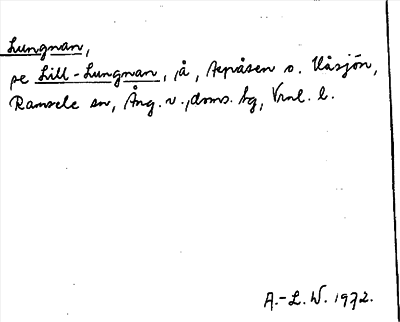 Lungnan,
se Lill-Lungnan, å, Aspåsen o. Flåsjön,
Ramsele sn, Ång. v. doms. hg, Vrnl. l.
A.-L. W. 1972.